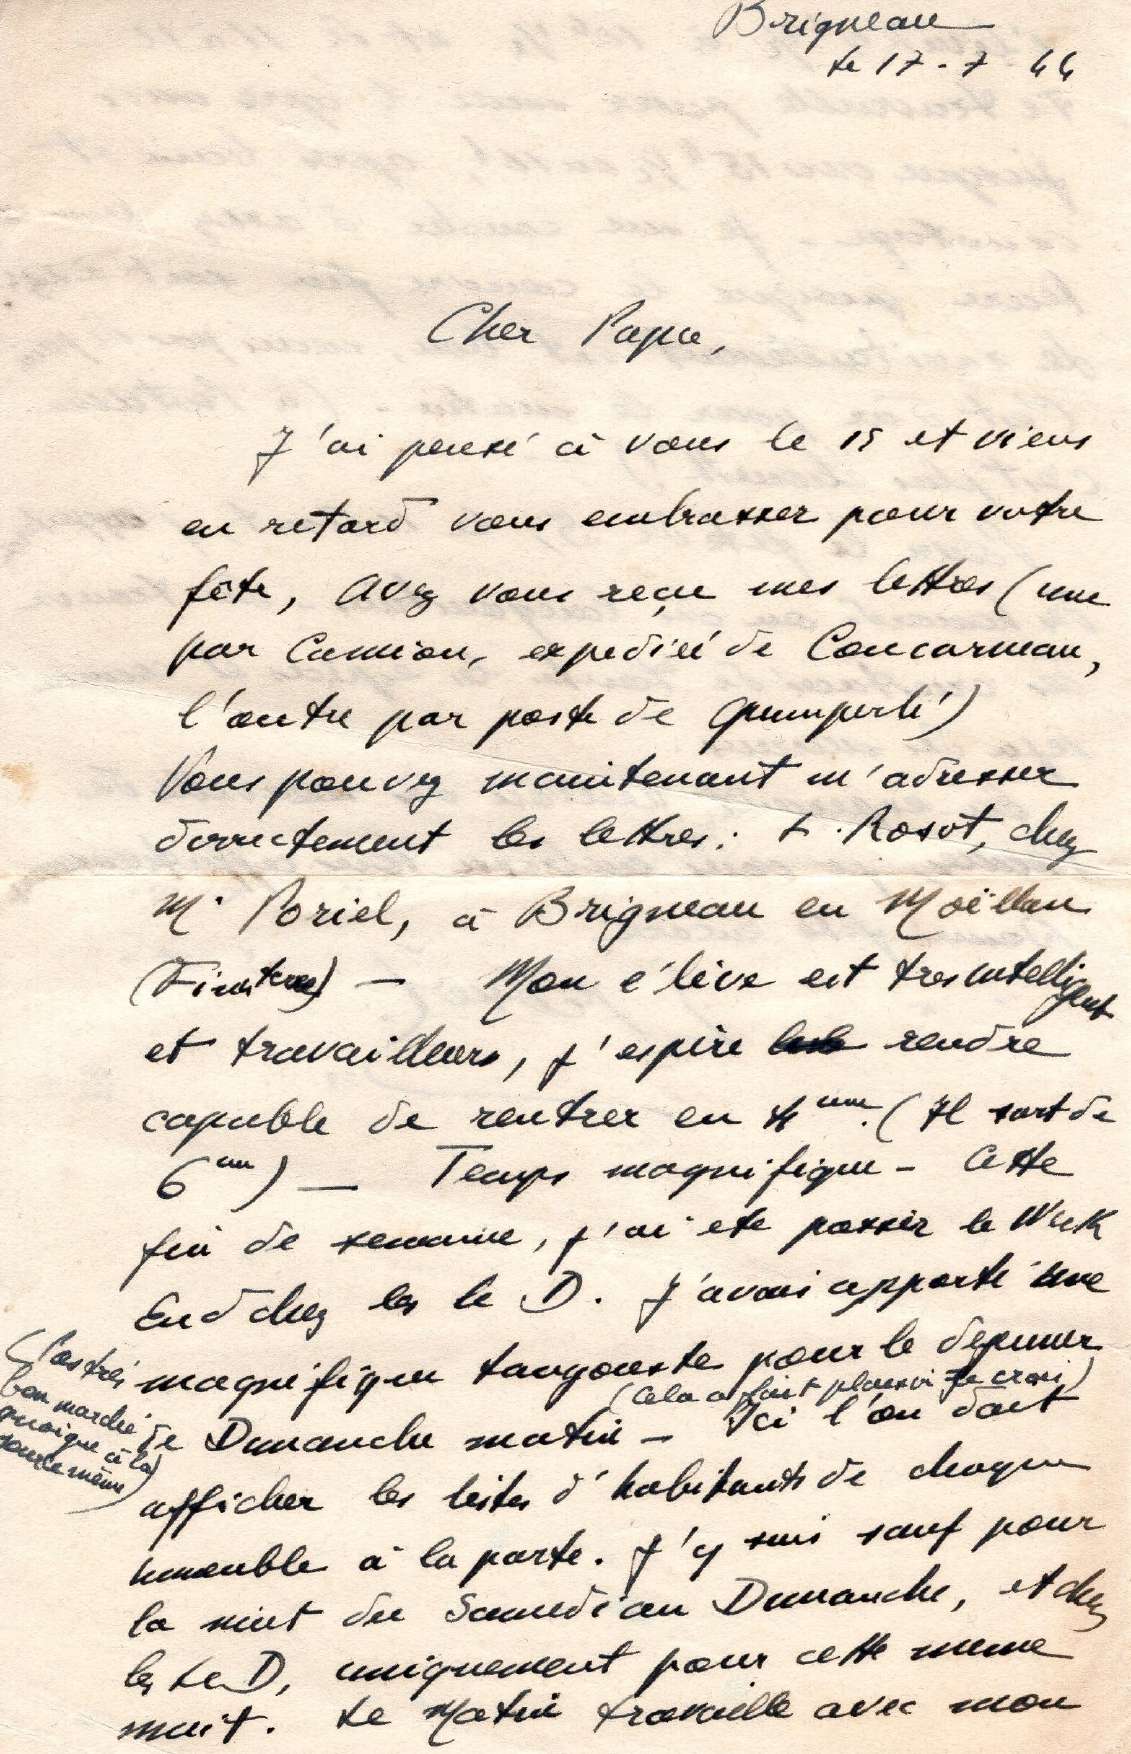 Brigneau
le 17-7 44
Cher Papa,
J'ai pensé à vous le 15 et viens
en retard vous embrasser pour votre
fête, Avez vous reçu mes lettres (une
par Camion, expediéé de Concarneau,
l'autre par poste de Quimperlé)
Vous pouvez maintenant m'adresser
directement les lettres: L. Rosot, chez
Mr Poriel, à Brigneau en Moëllan
(Finistere) — Mon élève est tres intelligent
et travailleurs, j'espère rendre
capable de rentrer en 4eme. (Il sort de
6em) — Temps magnifique - Cette
fin de semaine, j'ai eté passer le Week
End chez les le D. J'avais apporté une
magnifique langouste pour le dejeuner
(cela a fait plaisir je crois)
(Pas très
bon marché
quoique à la
source même)
de Dimanche matin - Ici l'on doit
afficher les listes d'habitants de chaque
immeuble à la porte. J'y suis sauf pour
la nuit du Samedi au Dimanche, et chez
les Le D, uniquement pour cette meme
nuit. Le Matin travaille avec mon